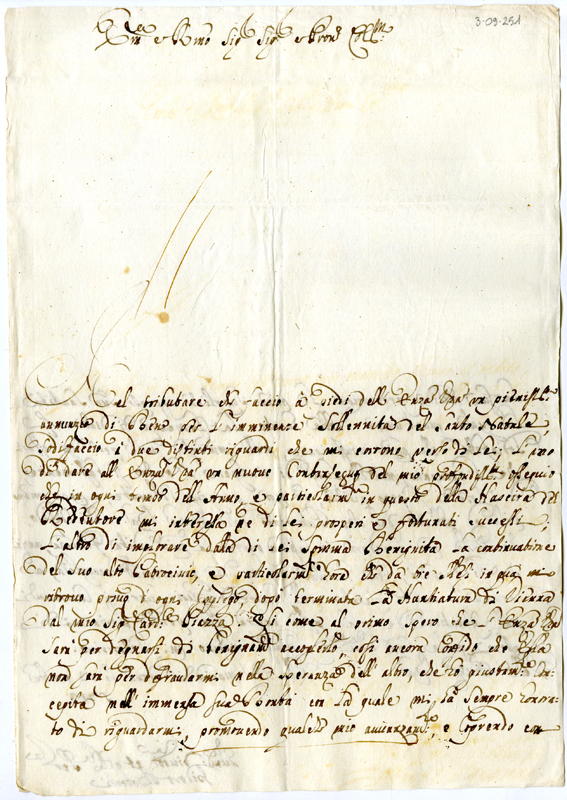 3-09-251
Em.o e R.mo Sig.r Sig.r e Pron. Coll.mo
Nel tributare ch'io faccio à piedi dell'Emza Vra un pieniss.o
annunzio di Bene per l'imminente Sollennità del Santo Natale,
sodisfaccio à due distinti riguardi che mi corrono verso di Lei; l'uno
di dare all'Emza Vra un nuovo contrasegno del mio profondiss.o ossequio
che in ogni tempo dell'Anno, e particolarm.te in questo della Nascita del
Redentore m'interessa ne di Lei prosperi e fortunati successi;
L'altro di implorare dalla di Lei somma Benignità la continuatione
del suo alto Patrocinio, e particolarm.te ora che da tre Mesi in quà mi
ritrovo privo d'ogni impiego dopo terminata la Nuntiatura di Vienna
dal mio Sig.r Card.le Piazza. Si come al primo spero che l'Emza Vra
sarà per degnarsi di benignam.te accoglierlo, così ancora confido che Ella
non sarà per defraudarmi nella speranza dell'altro, che hò giustam.te con-
cepita nell'immensa sua Bontà con la quale mi hà sempre honora-
to di riguardarmi, promovendo qualche mio avanzam.to, e coprendo con